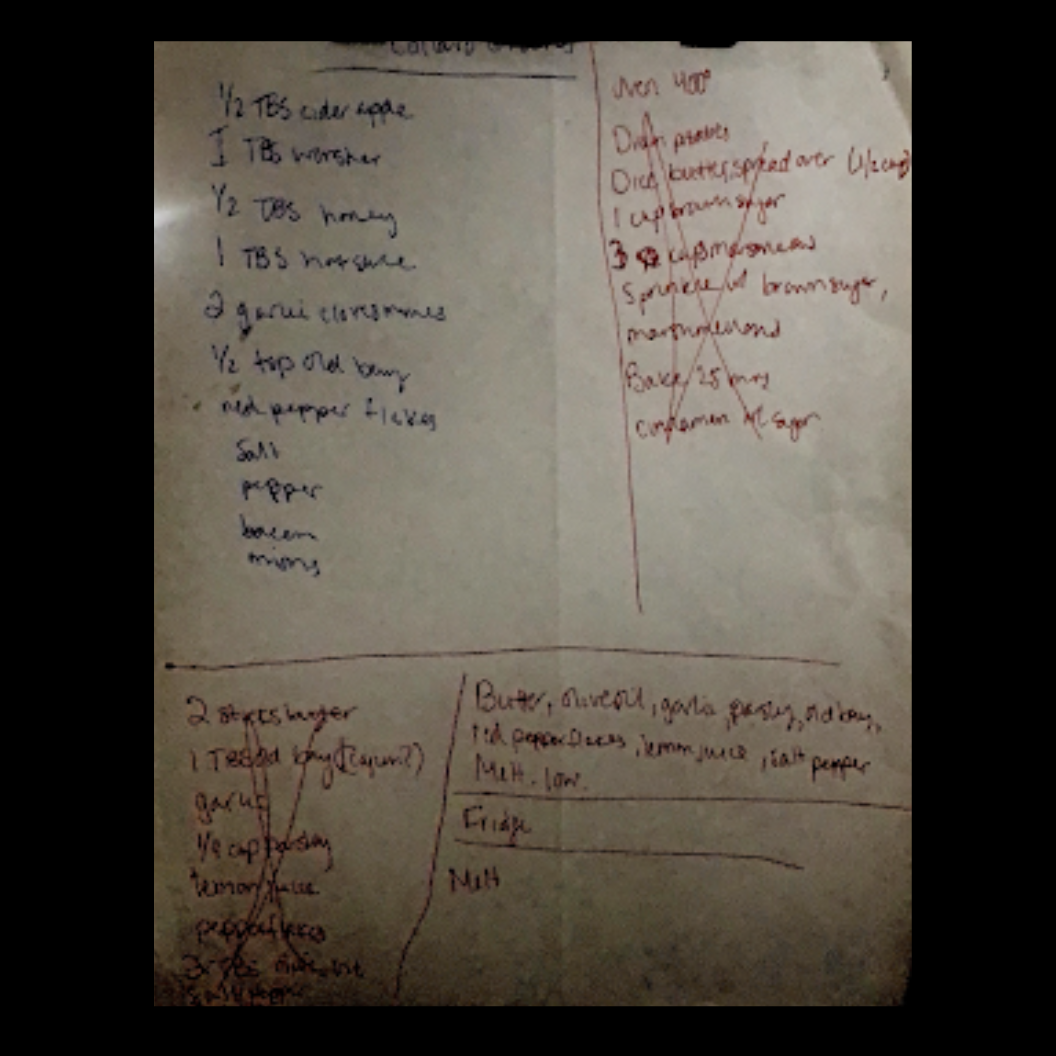 Collard Greens
1/2 TBS cider apple
1 TBS worsher
1/2 TBS honey
1 TBS hotsauce
2 garlic cloves
1/2 tsp old bay
red pepper flakes
Salt
pepper
bacon
onions
Oven 400°
Drain potatoes
Dice butter, spread over (1/2 cup)
1 cup brown sugar
3 cup
Sprinkle w/ brown sugar,
Bake 25 mins
cinnamon sugar
2 sticks butter
1 TBS old bay (cajun?)
garlic
1/4 cup parsley
lemon juice
pepper flakes
olive
Salt pepper
Butter, olive oil, garlic, parsley, old bay,
red pepper flakes, lemon juice, salt pepper
Melt. low.
Fridge
Melt